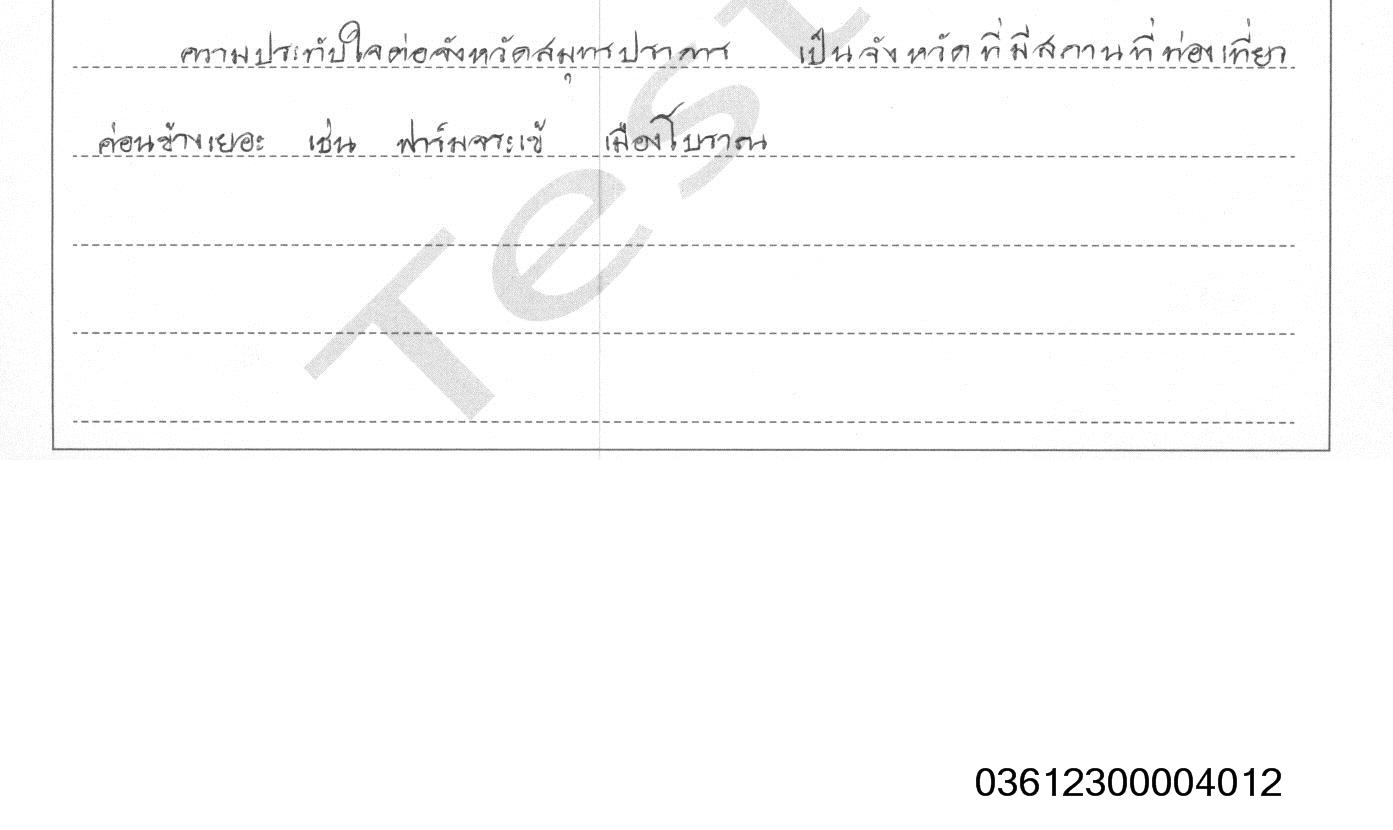 ความประทับใจต่อจังหวัดสมุทรปราการ เป็นจังหวัดที่มีสถานที่ท่องเที่ยว
ค่อนข้างเยอะ เช่น ฟาร์มจระเข้ เมืองโบราณ
Test
03612300004012